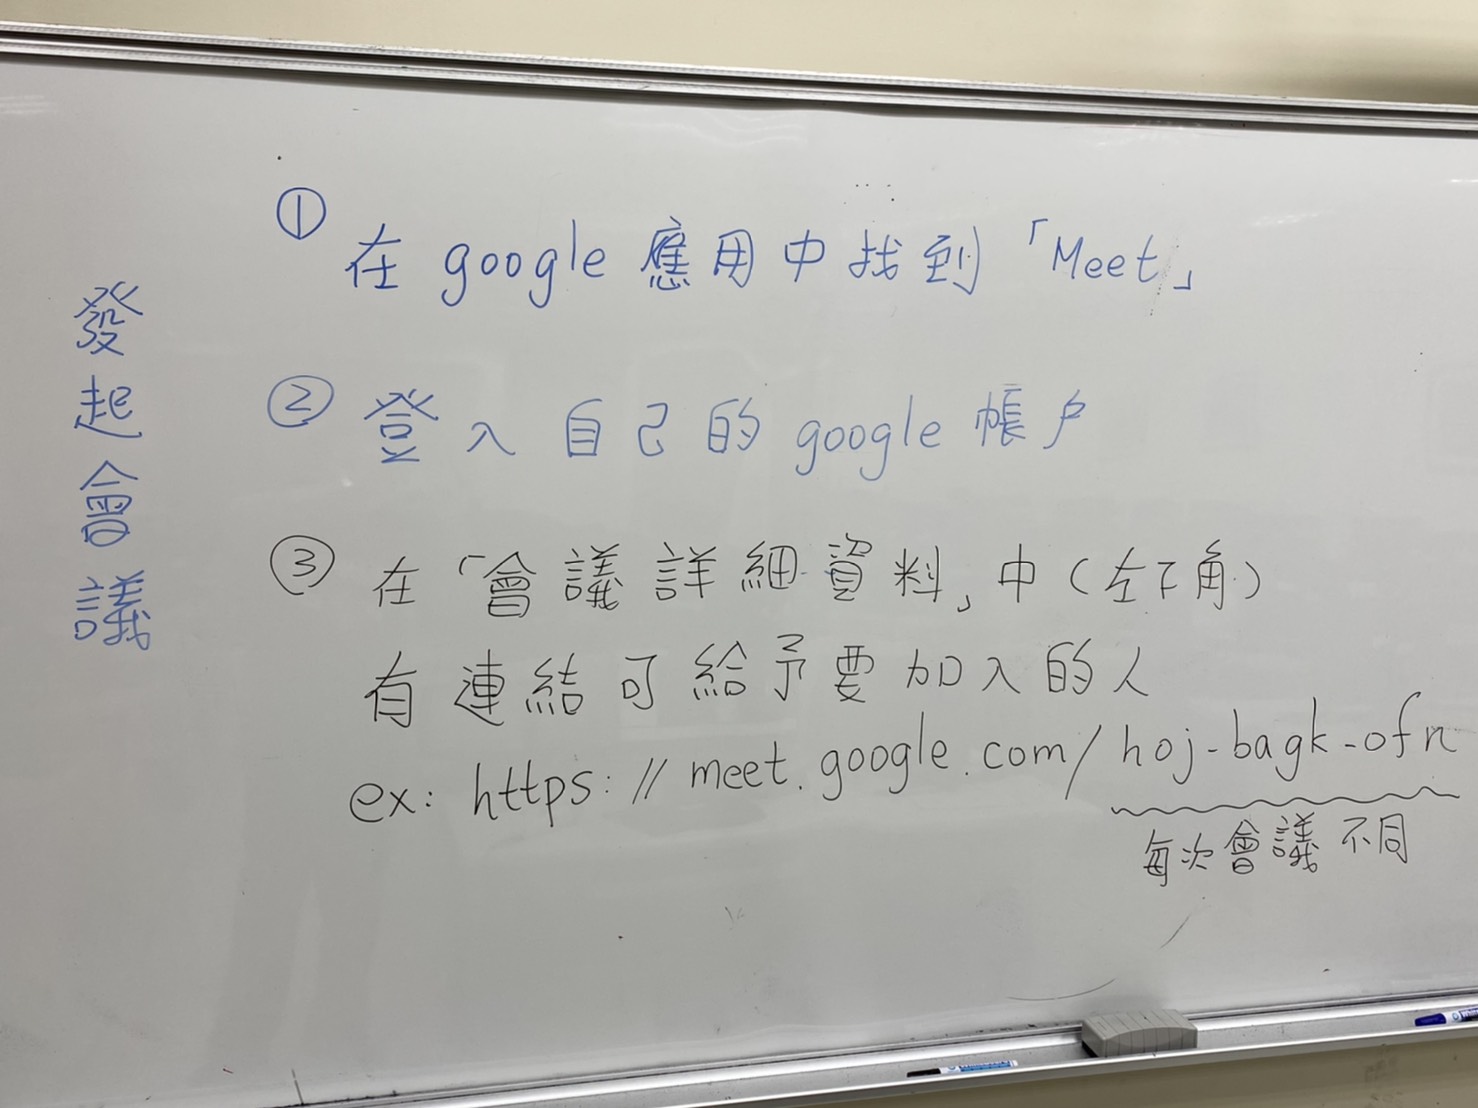 發起會議
① 在 google 應用中找到「Meet」
② 登入自己的 google 帳戶
③ 在「會議詳細資料」中(左下角)
有連結可給予要加入的人
ex: https://meet.google.com/hoj-bagk-ofn
每次會議不同